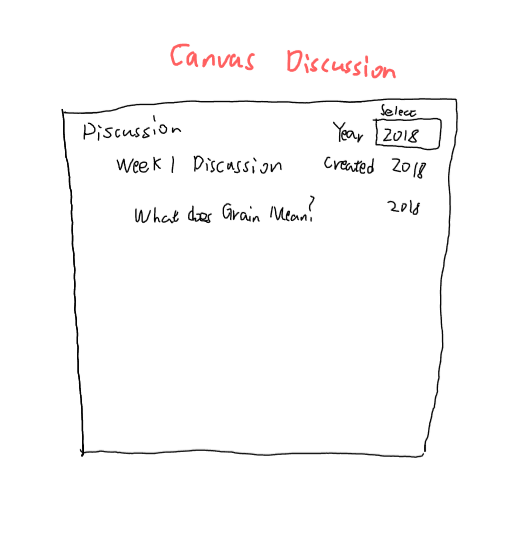 Canvas Discussion
Select
Discussion Year 2018
Week 1 Discussion Created 2018
What does Grain Mean? 2018